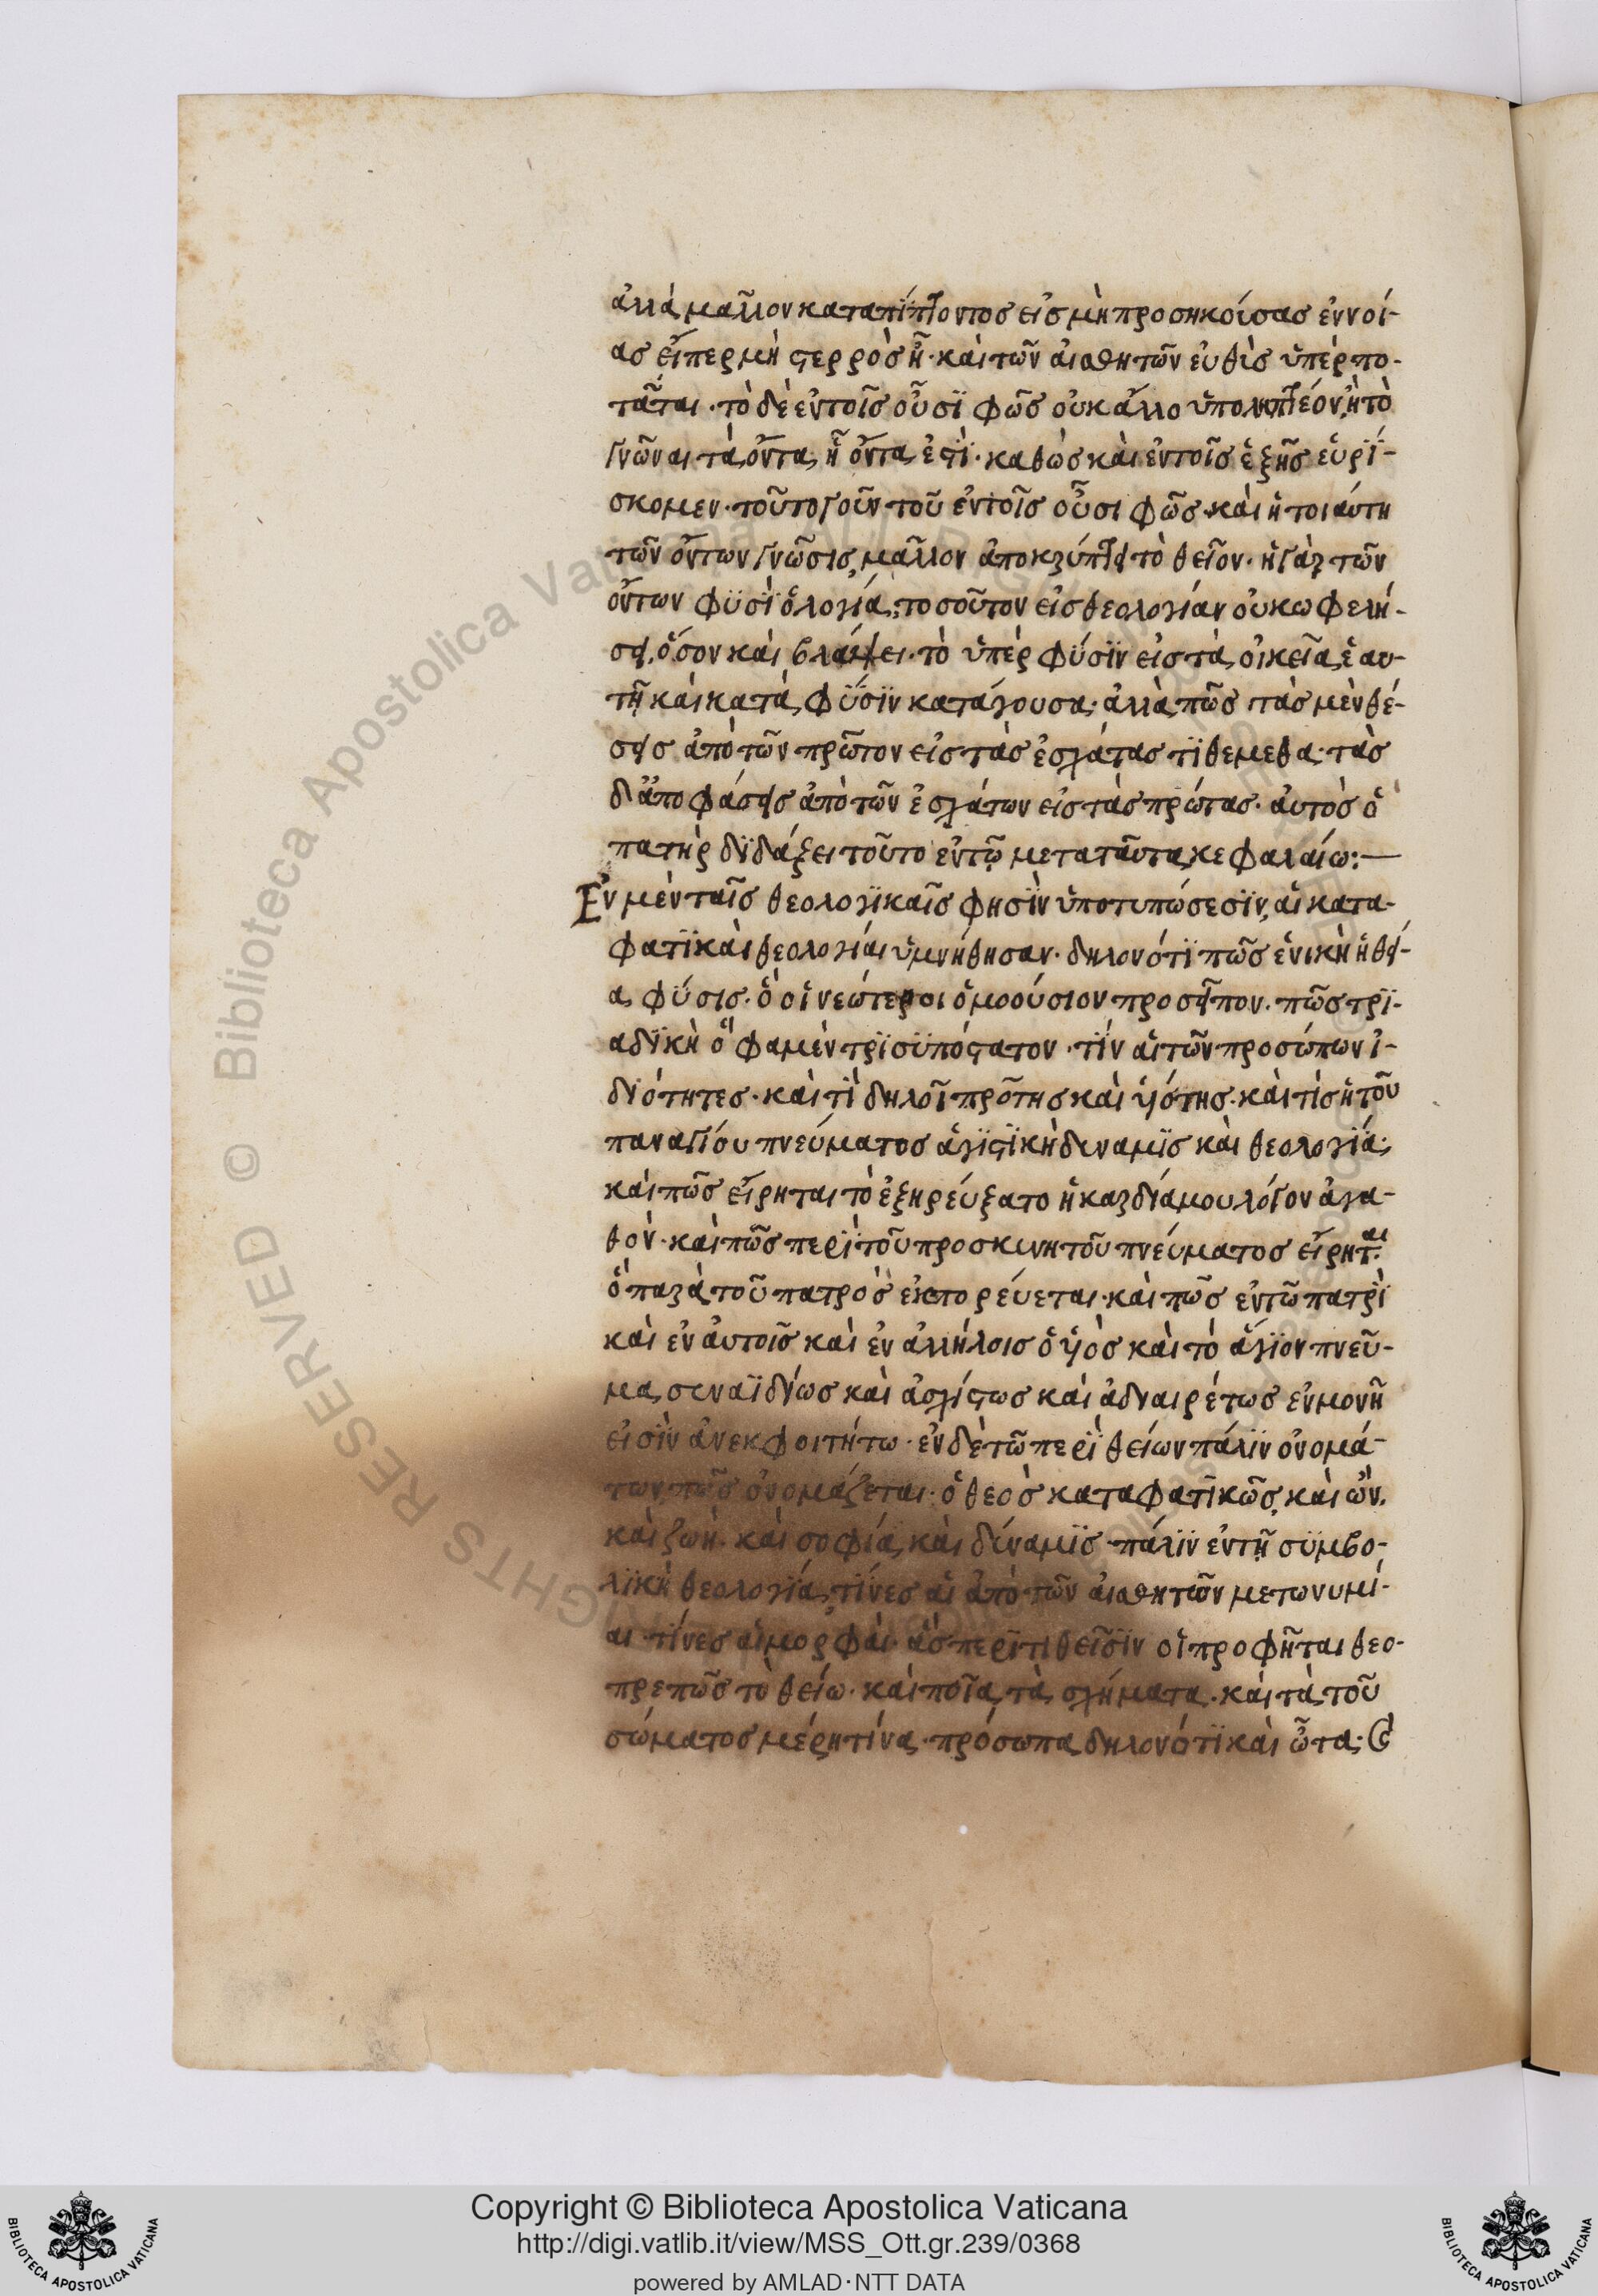 ἀλλὰ μᾶλλον καταπίπτοντος εἰς μὴ προσηκούσας ἐννοί-
ας εἴπερ μὴ στερρὸς ἦ· καὶ τῶν αἰσθητῶν εὐθὺς ὑπέρπο-
τᾶται· τὸ δὲ ἐν τοῖς οὖσϊ φῶς οὐκ ἄλλο ὑποληπτέον, ἢ τὸ
γνῶναι τὰ ὄντα, ἧ ὄντα ἐστὶ· καθὼς καὶ ἐν τοῖς ἑξῆς εὑρί-
σκομεν· τοῦτο γοῦν τοῦ ἐν τοῖς οὖσι φῶς καὶ ἡ τοιαύτη
τῶν ὄντων γνῶσις, μᾶλλον ἀποκρύπτει τὸ θεῖον· ἡ γὰρ τῶν
ὄντων φϋσϊὁλογία, τοσοῦτον εἰς θεολογίαν οὐκ ωφελή-
σει, ὅσον καὶ βλάψει· τὸ ὑπὲρ φύσϊν εἰς τὰ οἰκεῖα ἑαυ-
τῇ καὶ κατὰ φύσϊν κατάγουσα· ἀλλὰ πῶς τὰς μὲν θέ-
σεις ἀπὸ τῶν πρῶτον εἰς τὰς ἐσχάτας τϊθεμεθα· τὰς
δ' ἀποφάσεις ἀπὸ τῶν ἐσχάτων εἰς τὰς πρώτας· αὐτὸς ὁ
πατὴρ δϊδάξει τοῦτο ἐν τῷ μετα ταῦτα κεφαλαίω:—
Ἐν μὲν ταῖς θεολογϊκαῖς φησὶν ὑποτυπώσεσϊν, αἱ κατα-
φατϊκαὶ θεολογίαι ὑμνήθησαν· δηλονότϊ πῶς ἑνικὴ ἡ θεί-
α φύσις· ὃ οἱ νεώτεροι ὁμοούσιον προσεῖπον· πῶς τρϊ-
αδϊκὴ ὅ φαμὲν τρϊσϋπόστατον· τίν αἱ τῶν προσώπων ἰ-
διότητες· καὶ τὶ δηλοῖ πρότης καὶ ὑιότης· καὶ τίς ἡ τοῦ
παναγίου πνεύματος ἁγϊστϊκὴ δυναμϊς καὶ θεολογϊά;
καὶ πῶς εἴρηται τὸ ἐξηρεύξατο ἡ καρδία μου λόγον ἀγα-
θόν· καὶ πῶς περὶ τοῦ προσκυνητοῦ πνεύματος εἴρηται·
ὃ παρὰ τοῦ πατρὸς ἐκπορεύεται· καὶ πῶς ἐν τῶ πατρὶ
καὶ ἐν ἀυτοῖς καὶ ἐν ἀλλήλοις ὁ ὑιὸς καὶ τὸ ἅγϊον πνεῦ-
μα, συναϊδίως καὶ ἀσχίστως καὶ ἀδιαιρέτως ἐν μονῆ
εἰσϊν ἀνεκφοιτήτω· ἐν δὲ τῶ περὶ θείων πάλϊν ὀνομά-
των, πῶς ὀνομάζεται· ὁ θεὸς καταφατϊκῶς, καὶ ὢν.
καὶ ζωὴ· καὶ σοφία, καὶ δύναμϊς· πάλϊν ἐν τῇ συμβο-
λϊκῆ θεολογία, τίνες αἱ ἀπὸ τῶν αἰσθητῶν μετωνυμί-
αι· τίνες αἱ μορφαὶ· ἃς περϊτιθεῖσϊν οἱ προφῆται θεο-
πρεπῶς τὸ θείω· καὶ ποῖα τὰ σχήματα· καὶ τὰ τοῦ
σώματος μέρη τίνα· πρόσωπα δηλονότϊ καὶ ὦτα;
Copyright © Biblioteca Apostolica Vaticana
http://digi.vatlib.it/view/MSS_Ott.gr.239/0368
powered by AMLAD·NTT DATA
BIBLIOTECA APOSTOLICA VATICANA
BIBLIOTECA APOSTOLICA VATICANA